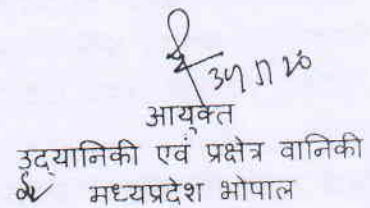 आयुक्त
उद्यानिकी एवं प्रक्षेत्र वानिकी
मध्यप्रदेश भोपाल